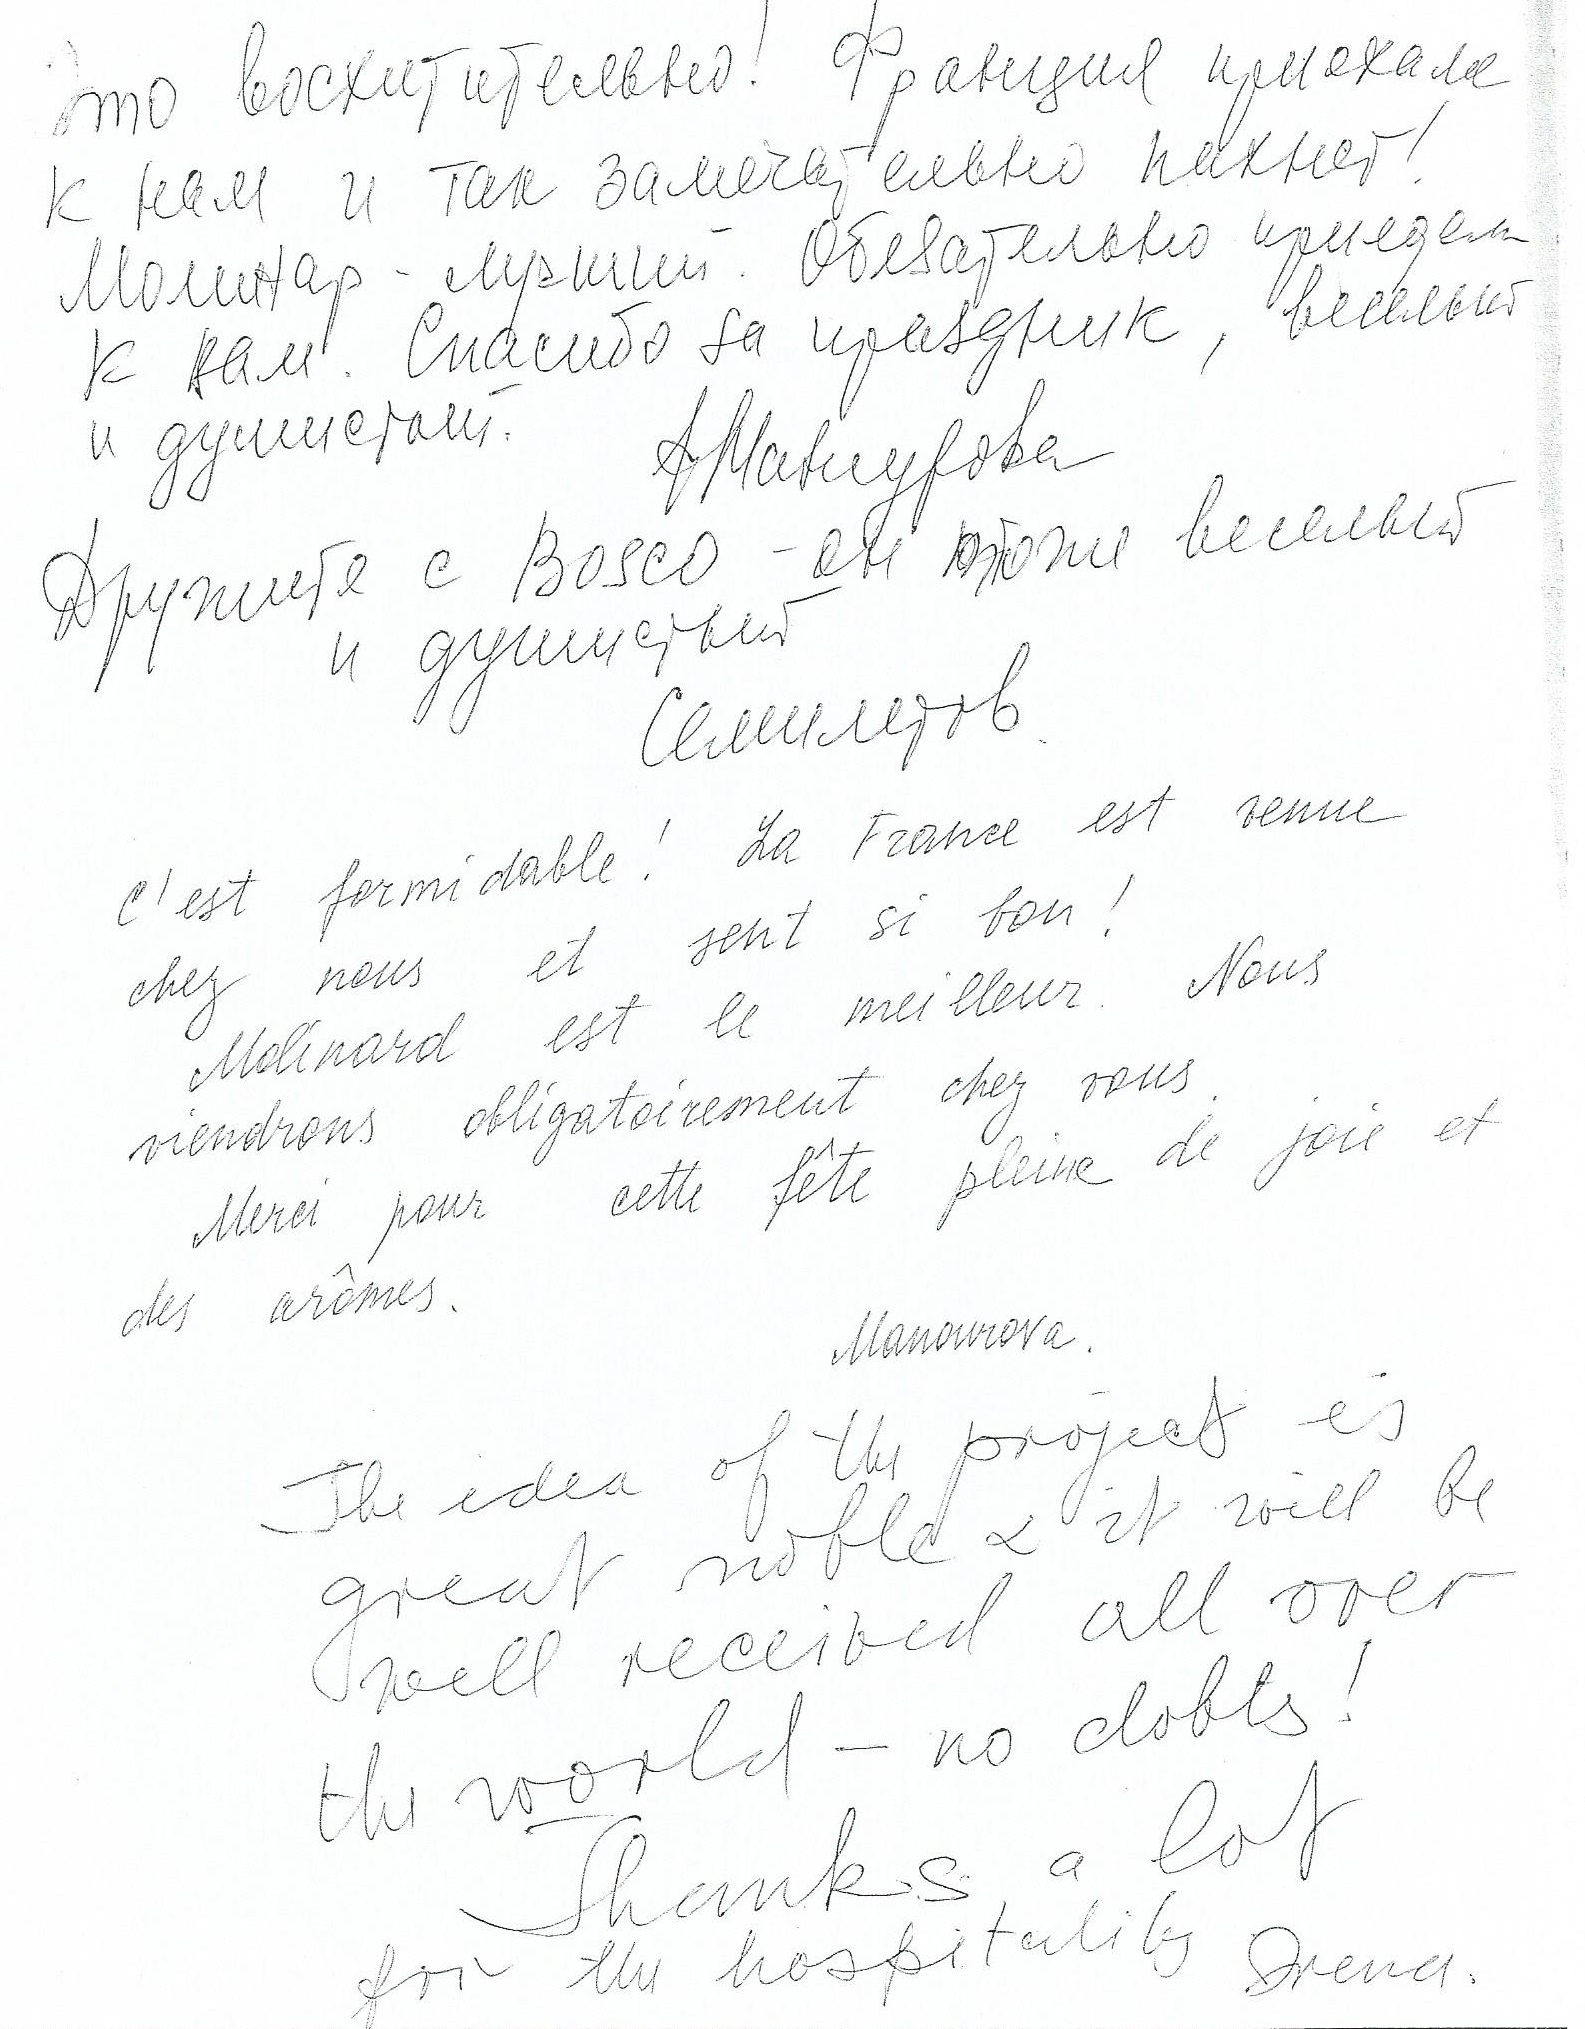 Это восхитительно! Франция приехала
к нам и так замечательно пахнет!
Молинар - лучший. Обязательно приедем
к вам. Спасибо за праздник, веселый
и душистый.
Дружите с Bosco - он тоже веселый
и душистый
Семилетов.
C'est formidable! La France est venue
chez nous et sent si bon!
Molinard est le meilleur. Nous
viendrons obligatoirement chez vous.
Merci pour cette fête pleine de joie et
des arômes.
Manourova.
The idea of the project is
great noble & it will be
well received all over
the world - no dobts!
Thanks a lot
for the hospitality Irena.